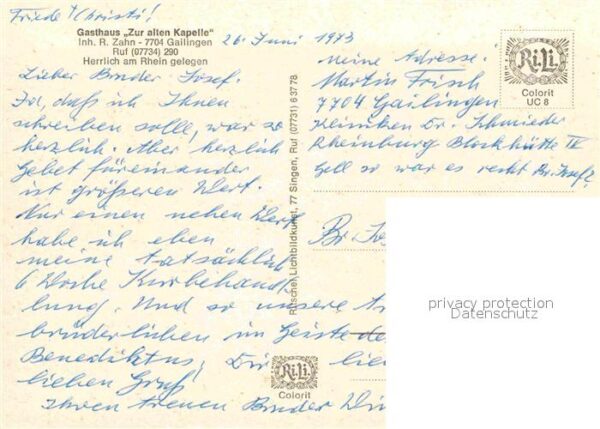 Friede Christi!
Gasthaus „Zur alten Kapelle"
Inh. R. Zahn - 7704 Gailingen
Ruf (07734) 290
Herrlich am Rhein gelegen
26. Juni 1973
Lieber Bruder Josef.
Ja, daß ich Ihnen
schreiben solle, war so
herzlich. Aber herzlich
Gebet füreinander
ist größeren Wert.
Nur einen Wert
habe ich eben
meine tatsächlich
6 Woche Kurbehand
lung. Und so unsere
brüderlichen im Geiste
Benediktus! Dir lie
lieben Gruß
Ihren treuen Bruder
meine Adresse:
Martin Frisch
7704 Gailingen
Kliniken Dr. Schmieder
Rheinburg Blockhütte IV
Gell so war es recht Br. Josef?
Br. Jo
Rösche, Lichtbildkunst, 77 Singen, Ruf (07731) 6 37 78
Ri.Li.
Colorit
UC 8
Ri.Li.
Colorit
privacy protection
Datenschutz